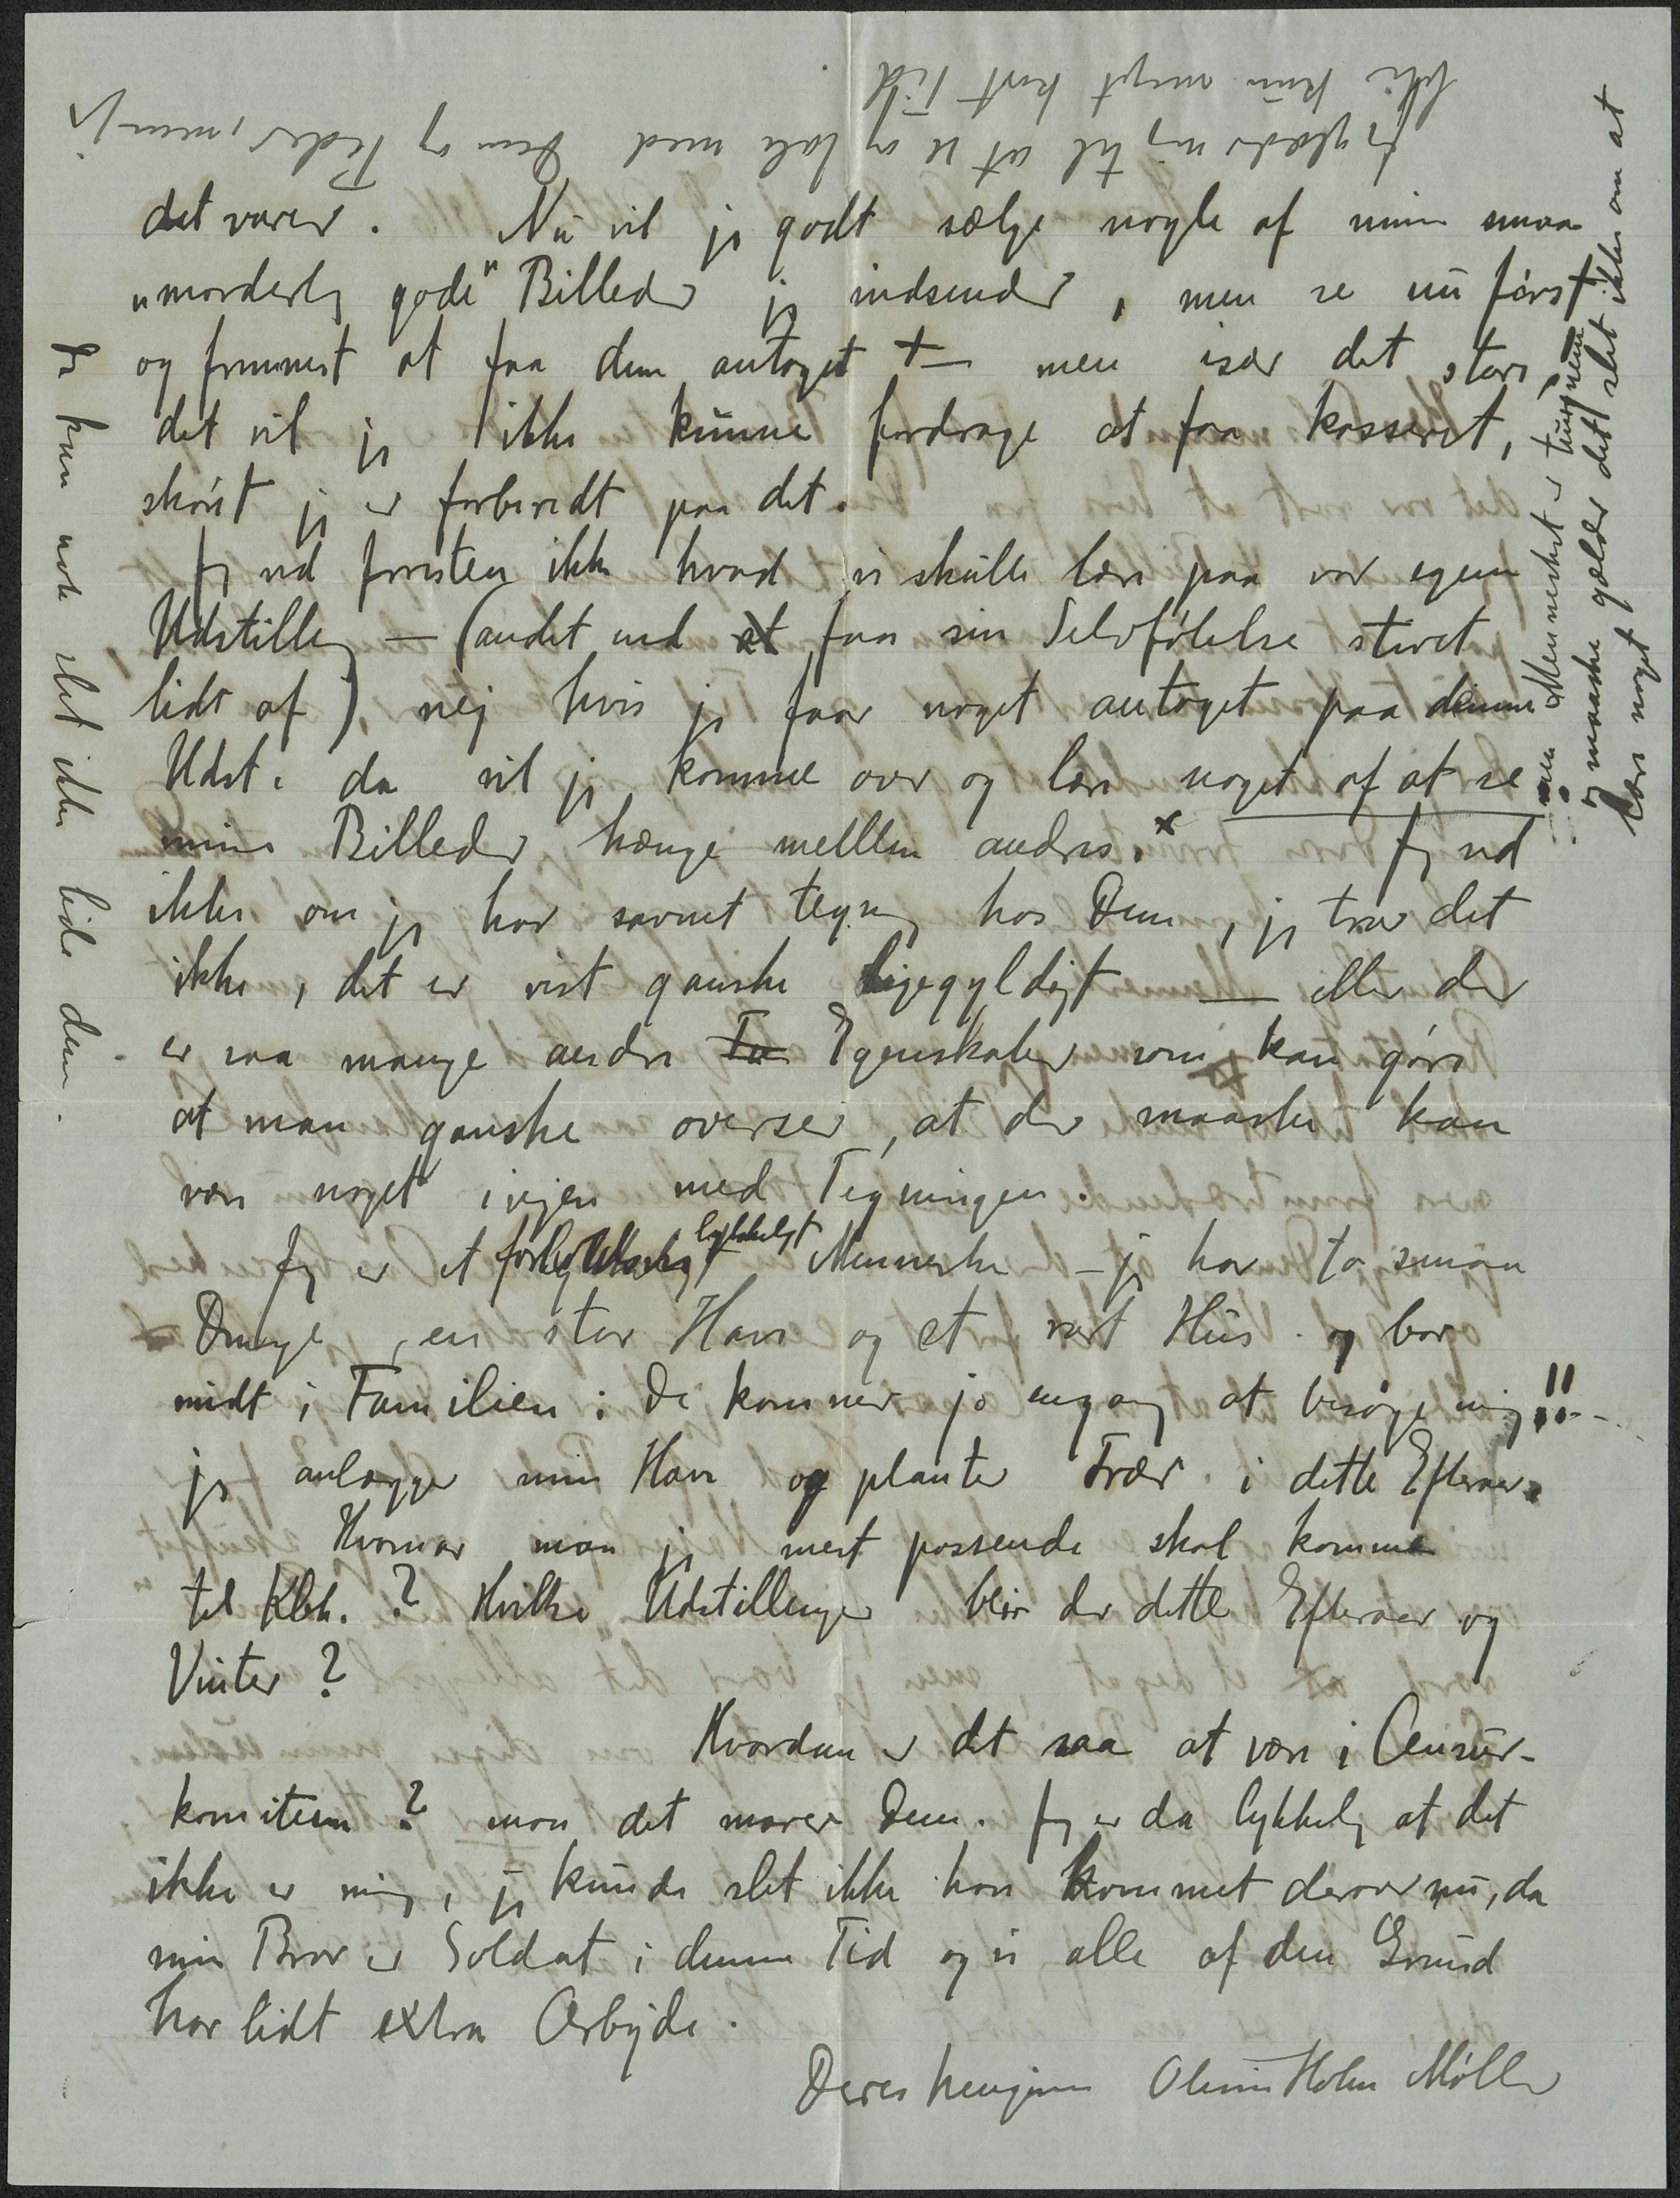 det varer. Nu vil jeg godt sælge nogle af mine smaa
"morderlig gode" Billeder jeg indsender, men se nu först
og fremmest at faa dem antaget + — men især det store
det vil jeg ikke kunne fordrage at faa kasseret,
skönt jeg er forberedt paa det.
Jeg ved forresten ikke hvad vi skulle lære paa vor egen
Udstilling — (andet end at faa sin Selvfölelse stivet
lidt af), nej hvis jeg faar noget antaget paa denne
Udst. da vil jeg komme over og lære noget af at se
mine Billeder hænge melllem andres. x Jeg ved
ikke om jeg har savnet tegning hos Dem, jeg tror det
ikke, det er vist ganske ligegyldigt — eller der
er saa mange andre Egenskaber som kan göre
at man ganske overser, at der maaske kan
være noget ivejen med Tegningen.
Jeg er et lykkeligt Menneske — jeg har to smaa
Drenge, en stor Have og et rart Hus og bor
midt i Familien; De kommer jo engang at besöge mig!!
jeg anlægger min Have og planter Træer i dette Efteraar.
Hvornaar mon jeg mest passende skal komme
til Kbh.? Hvilke Udstillinger blir der dette Efteraar og
Vinter?
Hvordan er det saa at være i Censur-
komiteen? mon det morer Dem. Jeg er da lykkelig at det
ikke er mig, jeg kunde slet ikke have kommet derover nu, da
min Bror er Soldat i denne Tid og vi alle af den Grund
har lidt extra Arbejde.
Deres hengivne Olivia Holm Möller
Jeg glæder mig til at se og tale med Dem og Peder, men j
blir kun meget kort Tid
Jeg kan nok slet ikke lide dem.
men Mennesket er tungnem
og maaske gælder det slet ikke om at
lære noget